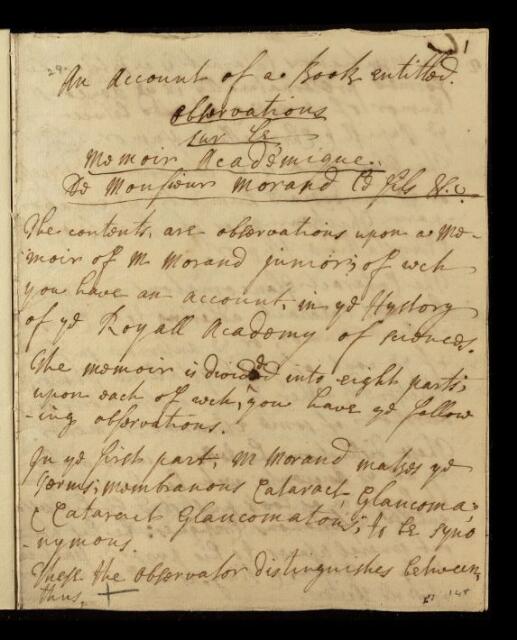 1
29.
An Account of a Book entitled.
observations
sur Le
Memoir Académique.
De Monsieur Morand Le fils &c.
The contents, are observations upon a Me-
moir of M Morand junior; of wch
you have an account, in ye Hystory
of ye Royall Academy of siences.
The memoir is divided into eight parts;
upon each of wch, you have ye follow
-ing observations.
In ye first part, M Morand makes ye
terms; membranous Cataract, Glaucoma;
& Cataract Glaucomatous; to be syno
-nymous.
These the observator distinguishes between,
thus. +